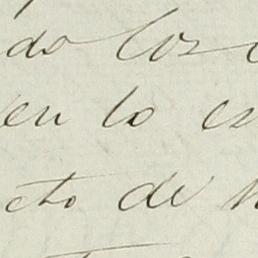 do los
en lo es
cto de